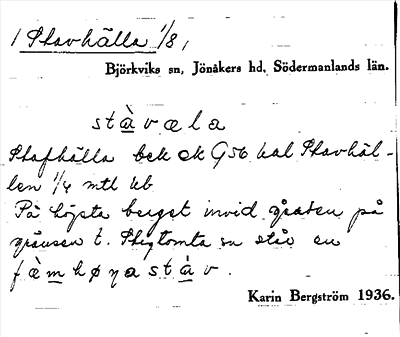 1 Stavhälla 1/8,
Björkviks sn, Jönåkers hd, Södermanlands län.
stàvæla
Stafhälla bek ek G56 kal Stavhäl-
len 1/4 mtl kb
På högsta berget invid gården på
gränsen t. Stigtomta sn står en
fæ̀mhøɳastàv.
Karin Bergström 1936.